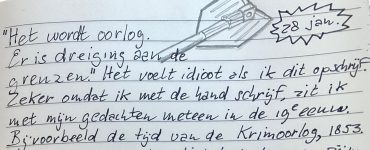 "Het wordt oorlog.
28 jan.
Er is dreiging aan de
grenzen." Het voelt idioot als ik dit opschrijf.
Zeker omdat ik met de hand schrijf, zit ik
met mijn gedachten meteen in de 19e eeuw.
Bijvoorbeeld de tijd van de Krimoorlog, 1853.